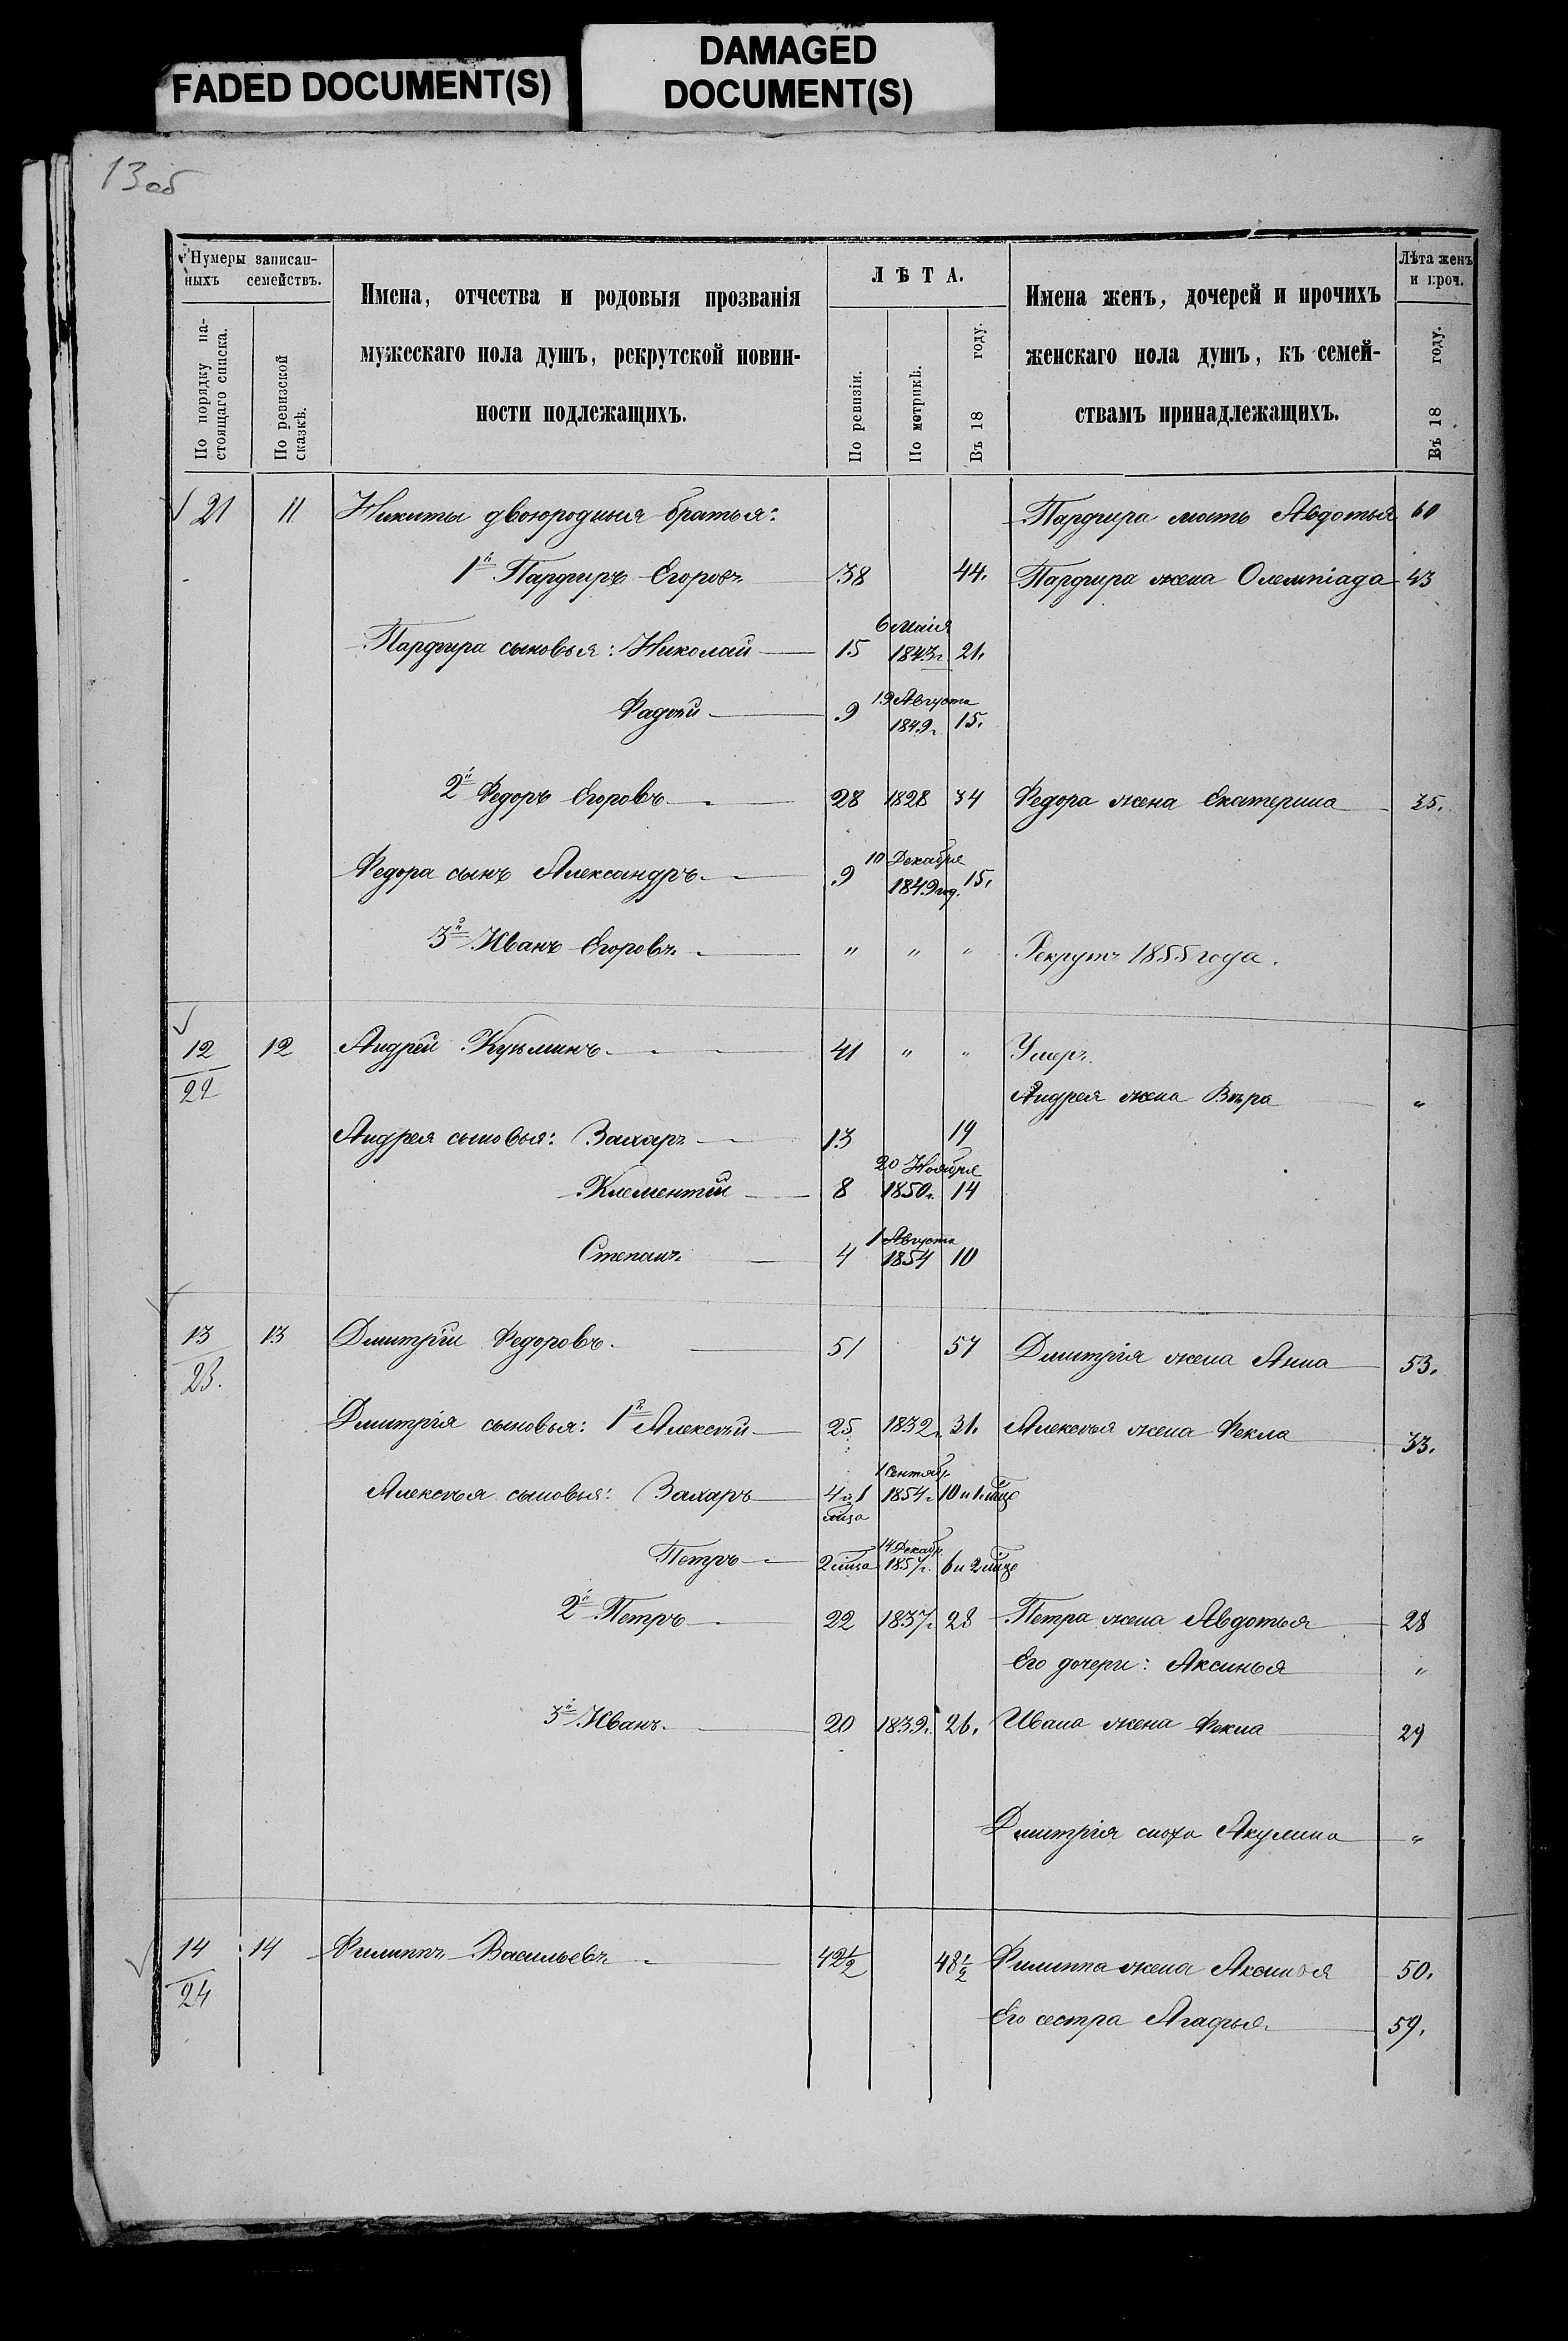 FADED DOCUMENT(S)
DAMAGED
DOCUMENT(S)
13об
Нумеры записан-
ныхъ семействъ.
По порядку на-
стоящаго списка.
По ревизской
сказкѣ.
Имена, отчества и родовыя прозванія
мужескаго пола душъ, рекрутской повин-
ности подлежащихъ.
ЛѢТА.
По ревизіи.
По метрикѣ.
Въ 18 году.
Имена женъ, дочерей и прочихъ
женскаго пола душъ, къ семей-
ствамъ принадлежащихъ.
Лѣта женъ
и проч.
Въ 18 году.
21 11 Никиты двоюродныя братья: Парфира мать Авдотья 60
1й Парфиръ Егоровъ 38 44. Парфира жена Олемпіада 43
6 Маія
Парфира сыновья: Николай 15 1843г. 21.
19 Августа
Фадѣй 9 1849г. 15.
2й Федоръ Егоровъ 28 1828 34 Федора жена Екатерина 35.
10 Декабря
Федора сынъ Александръ 9 1849год. 15.
3й Иванъ Егоровъ " " " Рекрутъ 1855 года.
12 12 Андрей Кузьминъ 41 " " Умеръ.
22 Андрея жена Вѣра "
Андрея сыновья: Захаръ 13 19
20 Ноября
Клементій 8 1850г. 14
1 Августа
Степанъ 4 1854 10
13 13 Дмитрій Федоровъ. 51 57 Дмитрія жена Анна 53.
23.
Дмитрія сыновья: 1й Алексѣй 25 1832. 31. Алексѣя жена Фекла 33.
1 Сентябр.
Алексѣя сыновья: Захаръ 4 и 1 1854г. 10 и 1 мце
мца
14 Декабр
Петръ 2 мца 1857г. 6 и 2 мце
2й Петръ 22 1837г. 28 Петра жена Авдотья 28
Его дочери: Аксинья "
3й Иванъ. 20 1839г. 26. Ивана жена Фекла 29
Дмитрія сноха Акулина "
14 14 Филиппъ Васильевъ 42½ 48½ Филиппа жена Аксинья 50.
24 Его сестра Агафья. 59.